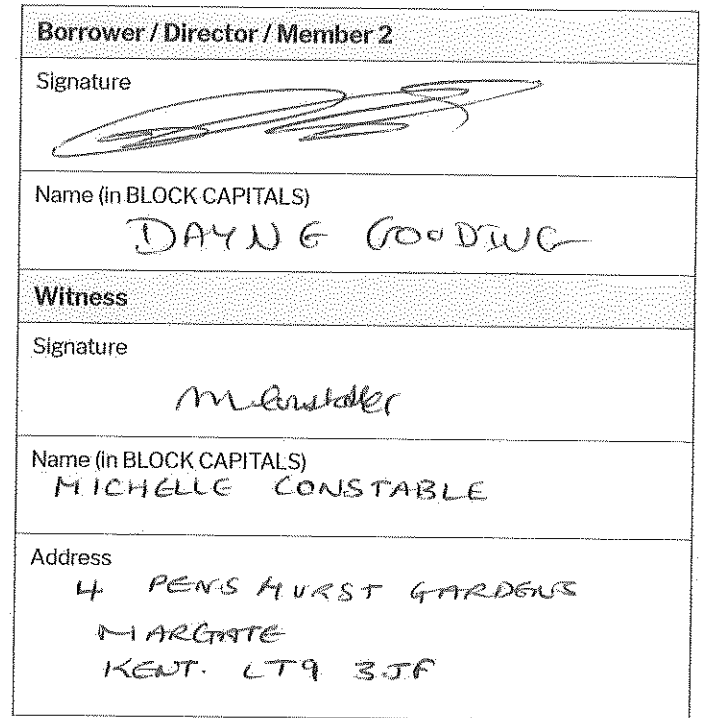 Borrower / Director / Member 2
Signature
Name (in BLOCK CAPITALS)
DAYNE GOODING
Witness
Signature
Name (in BLOCK CAPITALS)
MICHELLE CONSTABLE
Address
4 PENSHURST GARDENS
MARGATE
KENT. CT9 3JF